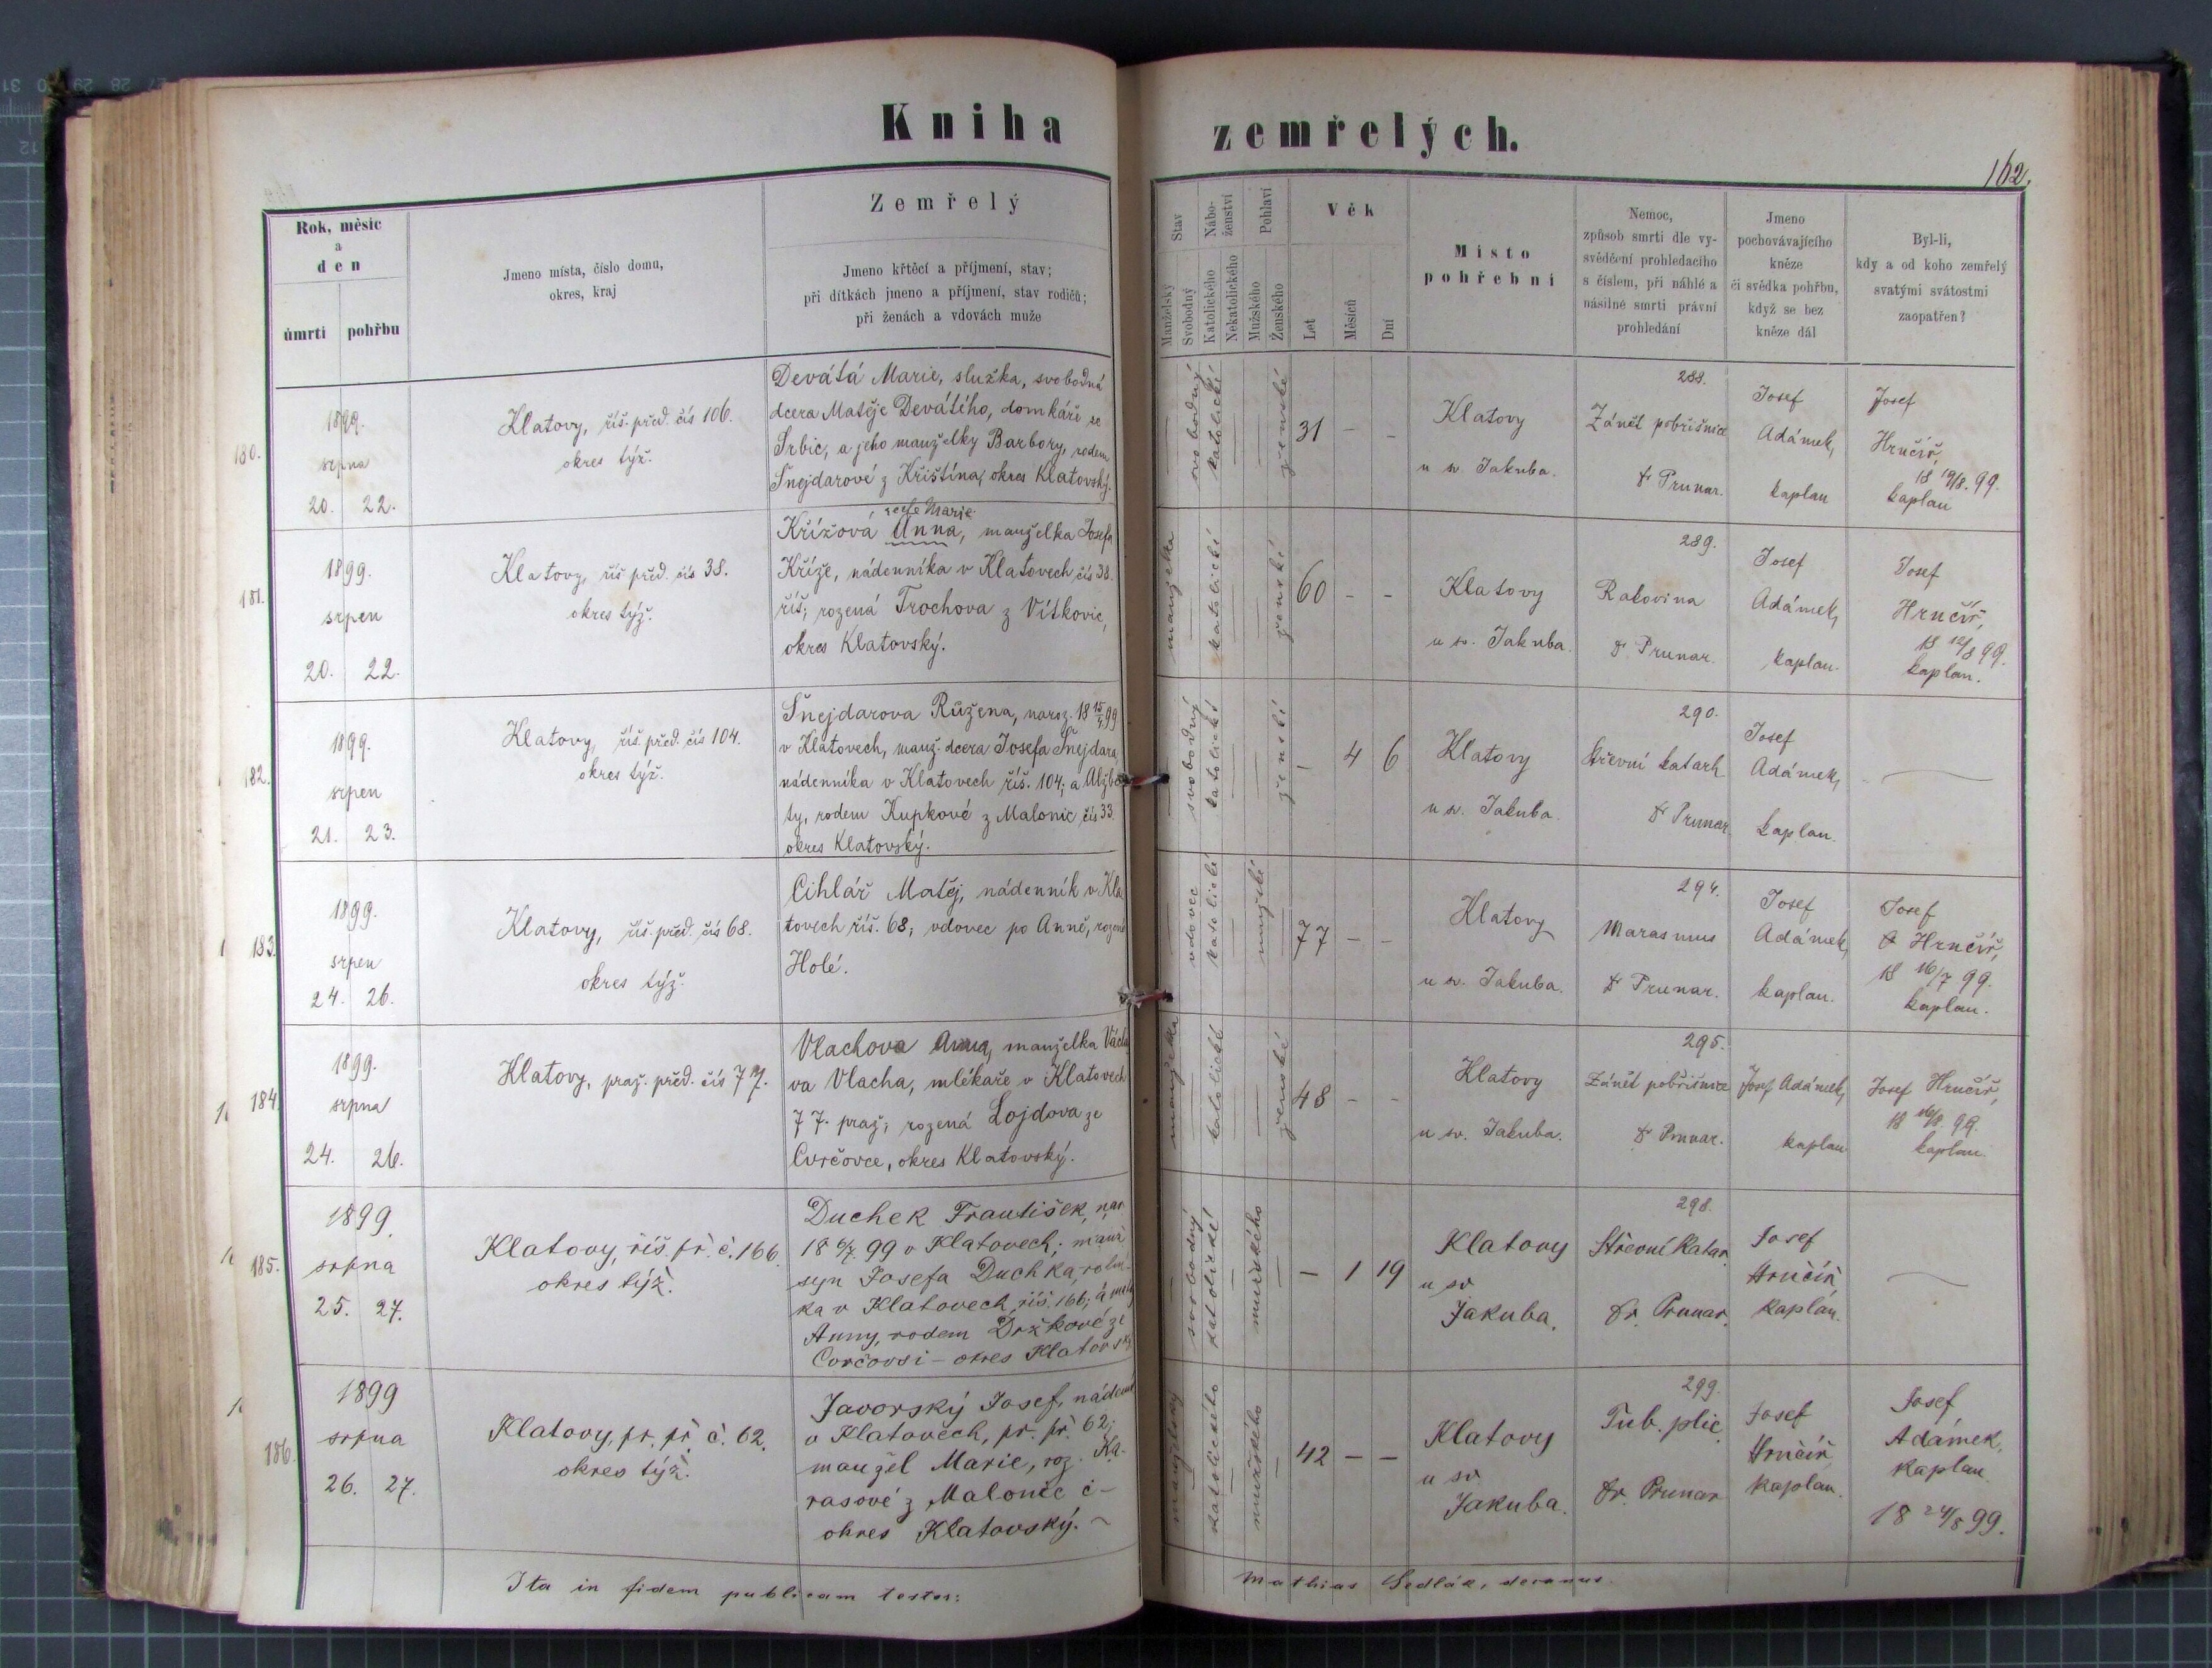 Kniha zemřelých.
162.
Rok, měsíc
a
den
úmrtí pohřbu
Jmeno místa, číslo domu,
okres, kraj
Zemřelý
Jmeno křtěcí a příjmení, stav;
při dítkách jmeno a příjmení, stav rodičů;
při ženách a vdovách muže
Stav
Manželský
Svobodný
Nábo-
ženství
Katolického
Nekatolického
Pohlaví
Mužského
Ženského
Věk
Let
Měsíců
Dní
Místo
pohřební
Nemoc,
způsob smrti dle vy-
svědčení prohledacího
s číslem, při náhlé a
násilné smrti právní
prohledání
Jmeno
pochovávajícího
kněze
či svědka pohřbu,
když se bez
kněze dál
Byl-li,
kdy a od koho zemřelý
svatými svátostmi
zaopatřen?
180.
1899.
srpna
20. 22.
Klatovy, říš. před. čís 106.
okres týž.
Devátá Marie, služka, svobodná
dcera Matěje Devátého, domkáře ze
Srbic, a jeho manželky Barbory, rodem
Šnejdarové z Křištína, okres Klatovský.
svobodný
katolické
ženské
31 - -
Klatovy
u sv. Jakuba.
288.
Zánět pobřišnice
Dr Prunar.
Josef
Adámek,
kaplan
Josef
Hrnčíř,
18 19/8. 99.
kaplan
181.
1899.
srpen
20. 22.
Klatovy, říš před. čís 38.
okres týž.
recte Marie
Křížová Anna, manželka Josefa
Kříže, nádenníka v Klatovech čís 38.
říš; rozená Trochova z Vítkovic,
okres Klatovský.
manželka
katolické
ženské
60 - -
Klatovy
u sv. Jakuba.
289.
Rakovina
Dr Prunar.
Josef
Adámek,
kaplan.
Josef
Hrnčíř,
18 12/8 99.
kaplan.
182.
1899.
srpen
21. 23.
Klatovy, říš. před. čís 104.
okres týž.
Šnejdarova Růžena, naroz. 18 15/4 99
v Klatovech, manž. dcera Josefa Šnejdara,
nádenníka v Klatovech říš. 104; a Alžbě
ty, rodem Kupkové z Malonic čís 33.
okres Klatovský.
svobodný
katolické
ženské
- 4 6
Klatovy
u sv. Jakuba.
290.
Střevní katarh
Dr Prunar
Josef
Adámek,
kaplan.
183.
1899.
srpen
24. 26.
Klatovy, říš. před. čís 68.
okres týž.
Cihlář Matěj, nádenník v Kla
tovech říš. 68; vdovec po Anně, rozené
Holé.
vdovec
katolické
mužské
77 - -
Klatovy
u sv. Jakuba.
294.
Marasmus
Dr Prunar.
Josef
Adámek,
kaplan.
Josef
Hrnčíř,
18 16/7 99.
kaplan.
184.
1899.
srpna
24. 26.
Klatovy, praž. před. čís 77.
okres týž.
Vlachova Anna, manželka Václa
va Vlacha, mlékaře v Klatovech
77. praž; rozená Lojdova ze
Cvrčovce, okres Klatovský.
manželka
katolické
ženské
48 - -
Klatovy
u sv. Jakuba.
295.
Zánět pobřišnice
Dr Prunar.
Josef Adámek,
kaplan
Josef Hrnčíř,
18 16/8. 99.
kaplan.
185.
1899.
srpna
25. 27.
Klatovy, říš. př. č. 166.
okres týž.
Duchek František, nar.
18 6/7. 99 v Klatovech; manž
syn Josefa Duchka, rolní-
ka v Klatovech, říš. 166; a manž
Anny, rodem Držkové ze
Cvrčovsi - okres Klatovský
svobodný
katolické
mužského
- 1 19
Klatovy
u sv
Jakuba.
298.
Střevní Katar.
Dr. Prunar.
Josef
Hrnčíř,
kaplan.
186.
1899
srpna
26. 27.
Klatovy, pr. př. č. 62.
okres týž.
Javorský Josef, nádenník
v Klatovech, pr. př. 62;
manžel Marie, roz. Ka-
rasové z Malonic č -
okres Klatovský. -
manželský
katolického
mužského
42 - -
Klatovy
u sv
Jakuba.
299.
Tub. plic.
Dr. Prunar
Josef
Hrnčíř
kaplan.
Josef
Adámek,
kaplan.
18 24/8 99.
Ita in fidem publicam testor:
Mathias Sedlák, decanus.